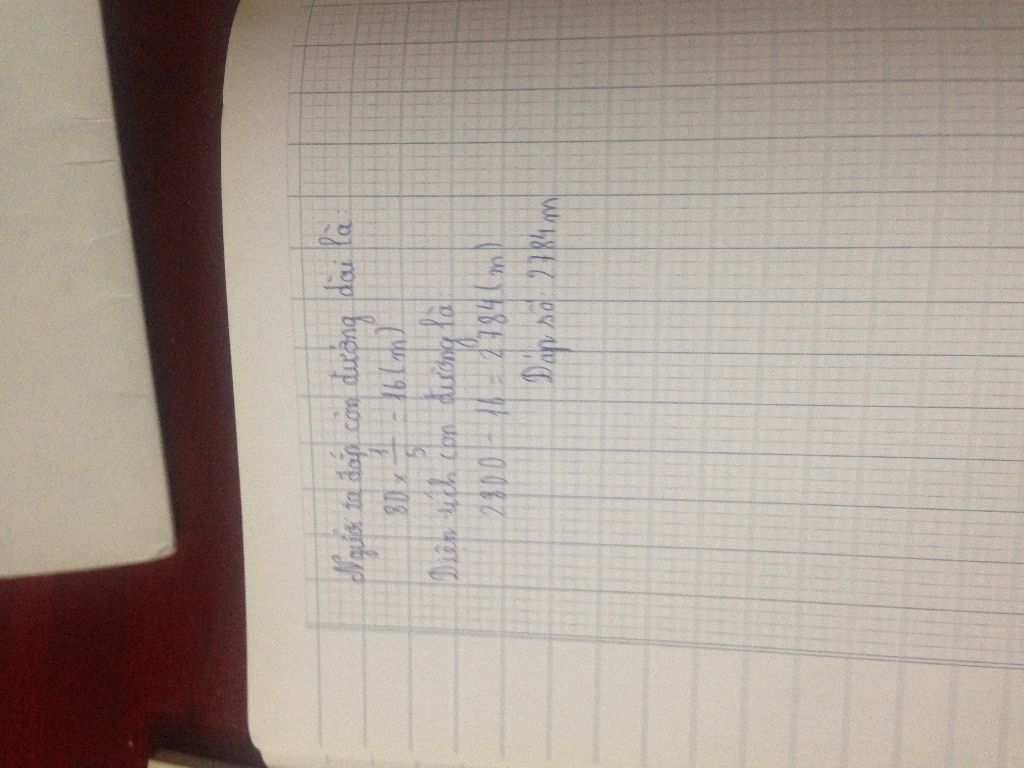 Người ta đắp con đường dài là:
80 × 1/5 = 16 (m)
Diện tích con đường là:
2800 - 16 = 2784 (m)
Đáp số: 2784 m